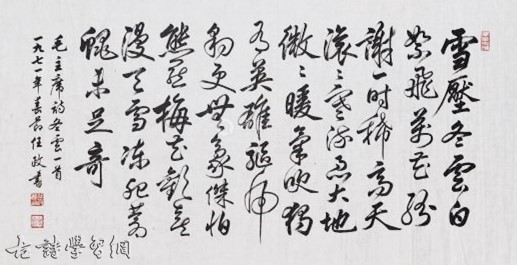 雪壓冬雲白
絮飛萬花紛
謝一时稀高天
滚々寒流急大地
微々暖氣吹獨
有英雄驅虎
豹更無豪傑怕
熊羆梅花歡喜
漫天雪冻死蒼
蠅未足奇
毛主席詩冬雲一首
一九七一年春任政書
學習網